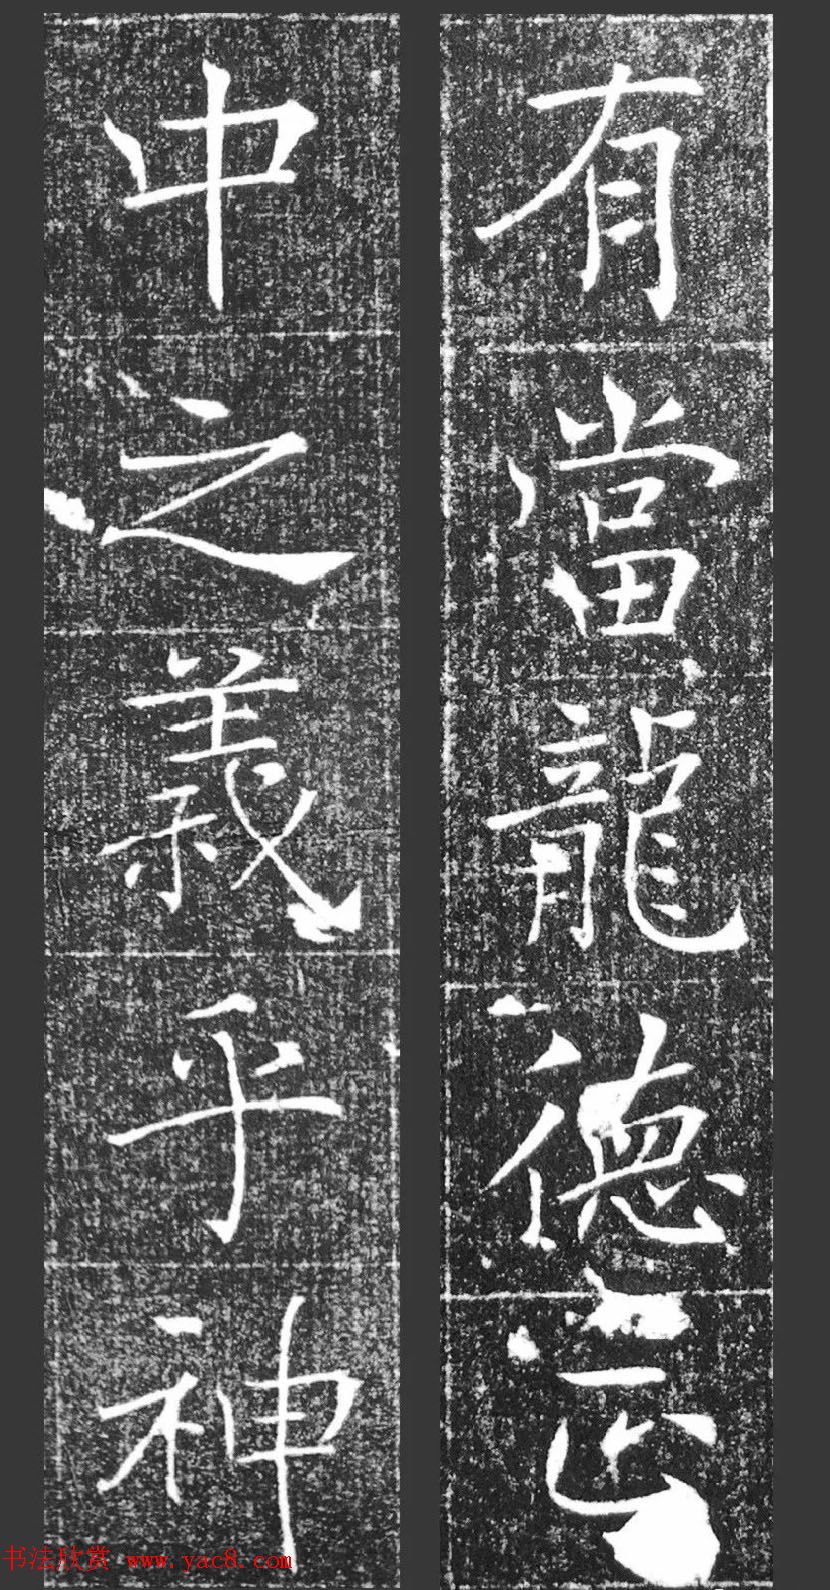 有當龍德正
中之義乎神
书法欣赏 www.yac8.com